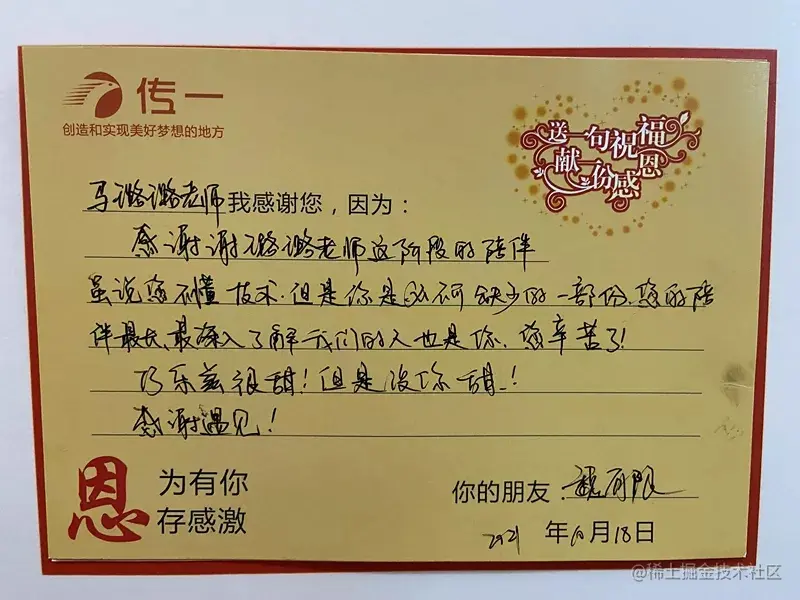 传一
创造和实现美好梦想的地方
送一句祝福
献一份感恩
马璐璐老师我感谢您，因为：
感谢谢璐璐老师这阶段的陪伴
虽说您不懂技术.但是你是必不可缺少的一部份.您的陪
伴最长、最深入了解我们的人也是你.您辛苦了!
巧乐兹很甜!但是没你甜!
感谢遇见!
恩
为有你
存感激
你的朋友：
2021年10月18日
@稀土掘金技术社区